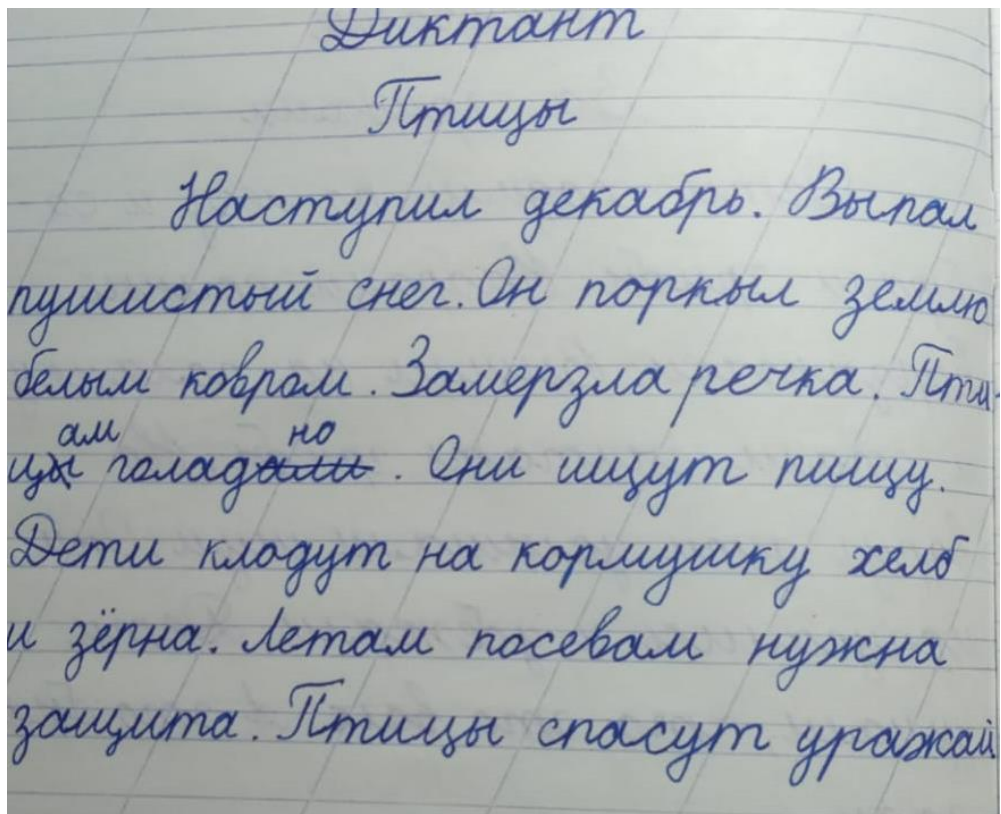 Диктант
Птицы
Наступил декабрь. Выпал
пушистый снег. Он поркыл землю
белым ковром. Замерзла речка. Пти-
ам но
цы голадали. Они ищут пищу.
Дети кладут на кормушку хелб
и зёрна. Летам посевам нужна
защита. Птицы спасут уражай